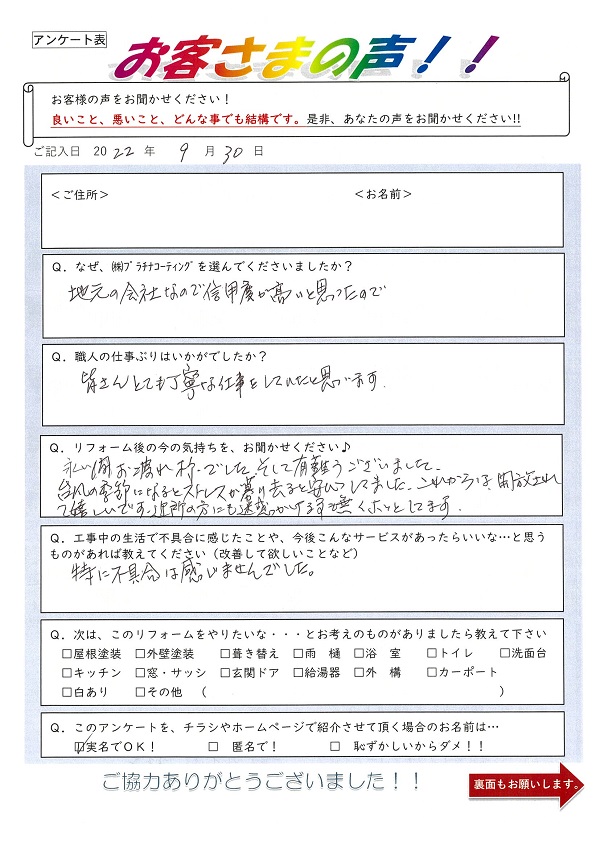 アンケート表
お客さまの声!!
お客様の声をお聞かせください！
良いこと、悪いこと、どんな事でも結構です。是非、あなたの声をお聞かせください!!
ご記入日 2022 年 9 月 30 日
＜ご住所＞ ＜お名前＞
Q．なぜ、㈱ﾌﾟﾗﾁﾅｺｰﾃｨﾝｸﾞを選んでくださいましたか？
地元の会社なので信用度が高いと思ったので
Q．職人の仕事ぶりはいかがでしたか？
皆さんとても丁寧な仕事をしていたと思います.
Q．リフォーム後の今の気持ちを、お聞かせください♪
永い間お疲れ様でした。そして有難うございました。
台風の季節になるとストレスが
これからは、開放されて
嬉しいです。近所の方にも迷惑かける事も無くホッとしてます.
Q．工事中の生活で不具合に感じたことや、今後こんなサービスがあったらいいな…と思う
ものがあれば教えてください（改善して欲しいことなど）
特に不具合は感じませんでした。
Q．次は、このリフォームをやりたいな・・・とお考えのものがありましたら教えて下さい
□屋根塗装 □外壁塗装 □葺き替え □雨 樋 □浴 室 □トイレ □洗面台
□キッチン □窓・サッシ □玄関ドア □給湯器 □外 構 □カーポート
□白あり □その他 （ ）
Q．このアンケートを、チラシやホームページで紹介させて頂く場合のお名前は…
☑実名でOK！ □ 匿名で！ □ 恥ずかしいからダメ！！
ご協力ありがとうございました！！
裏面もお願いします。